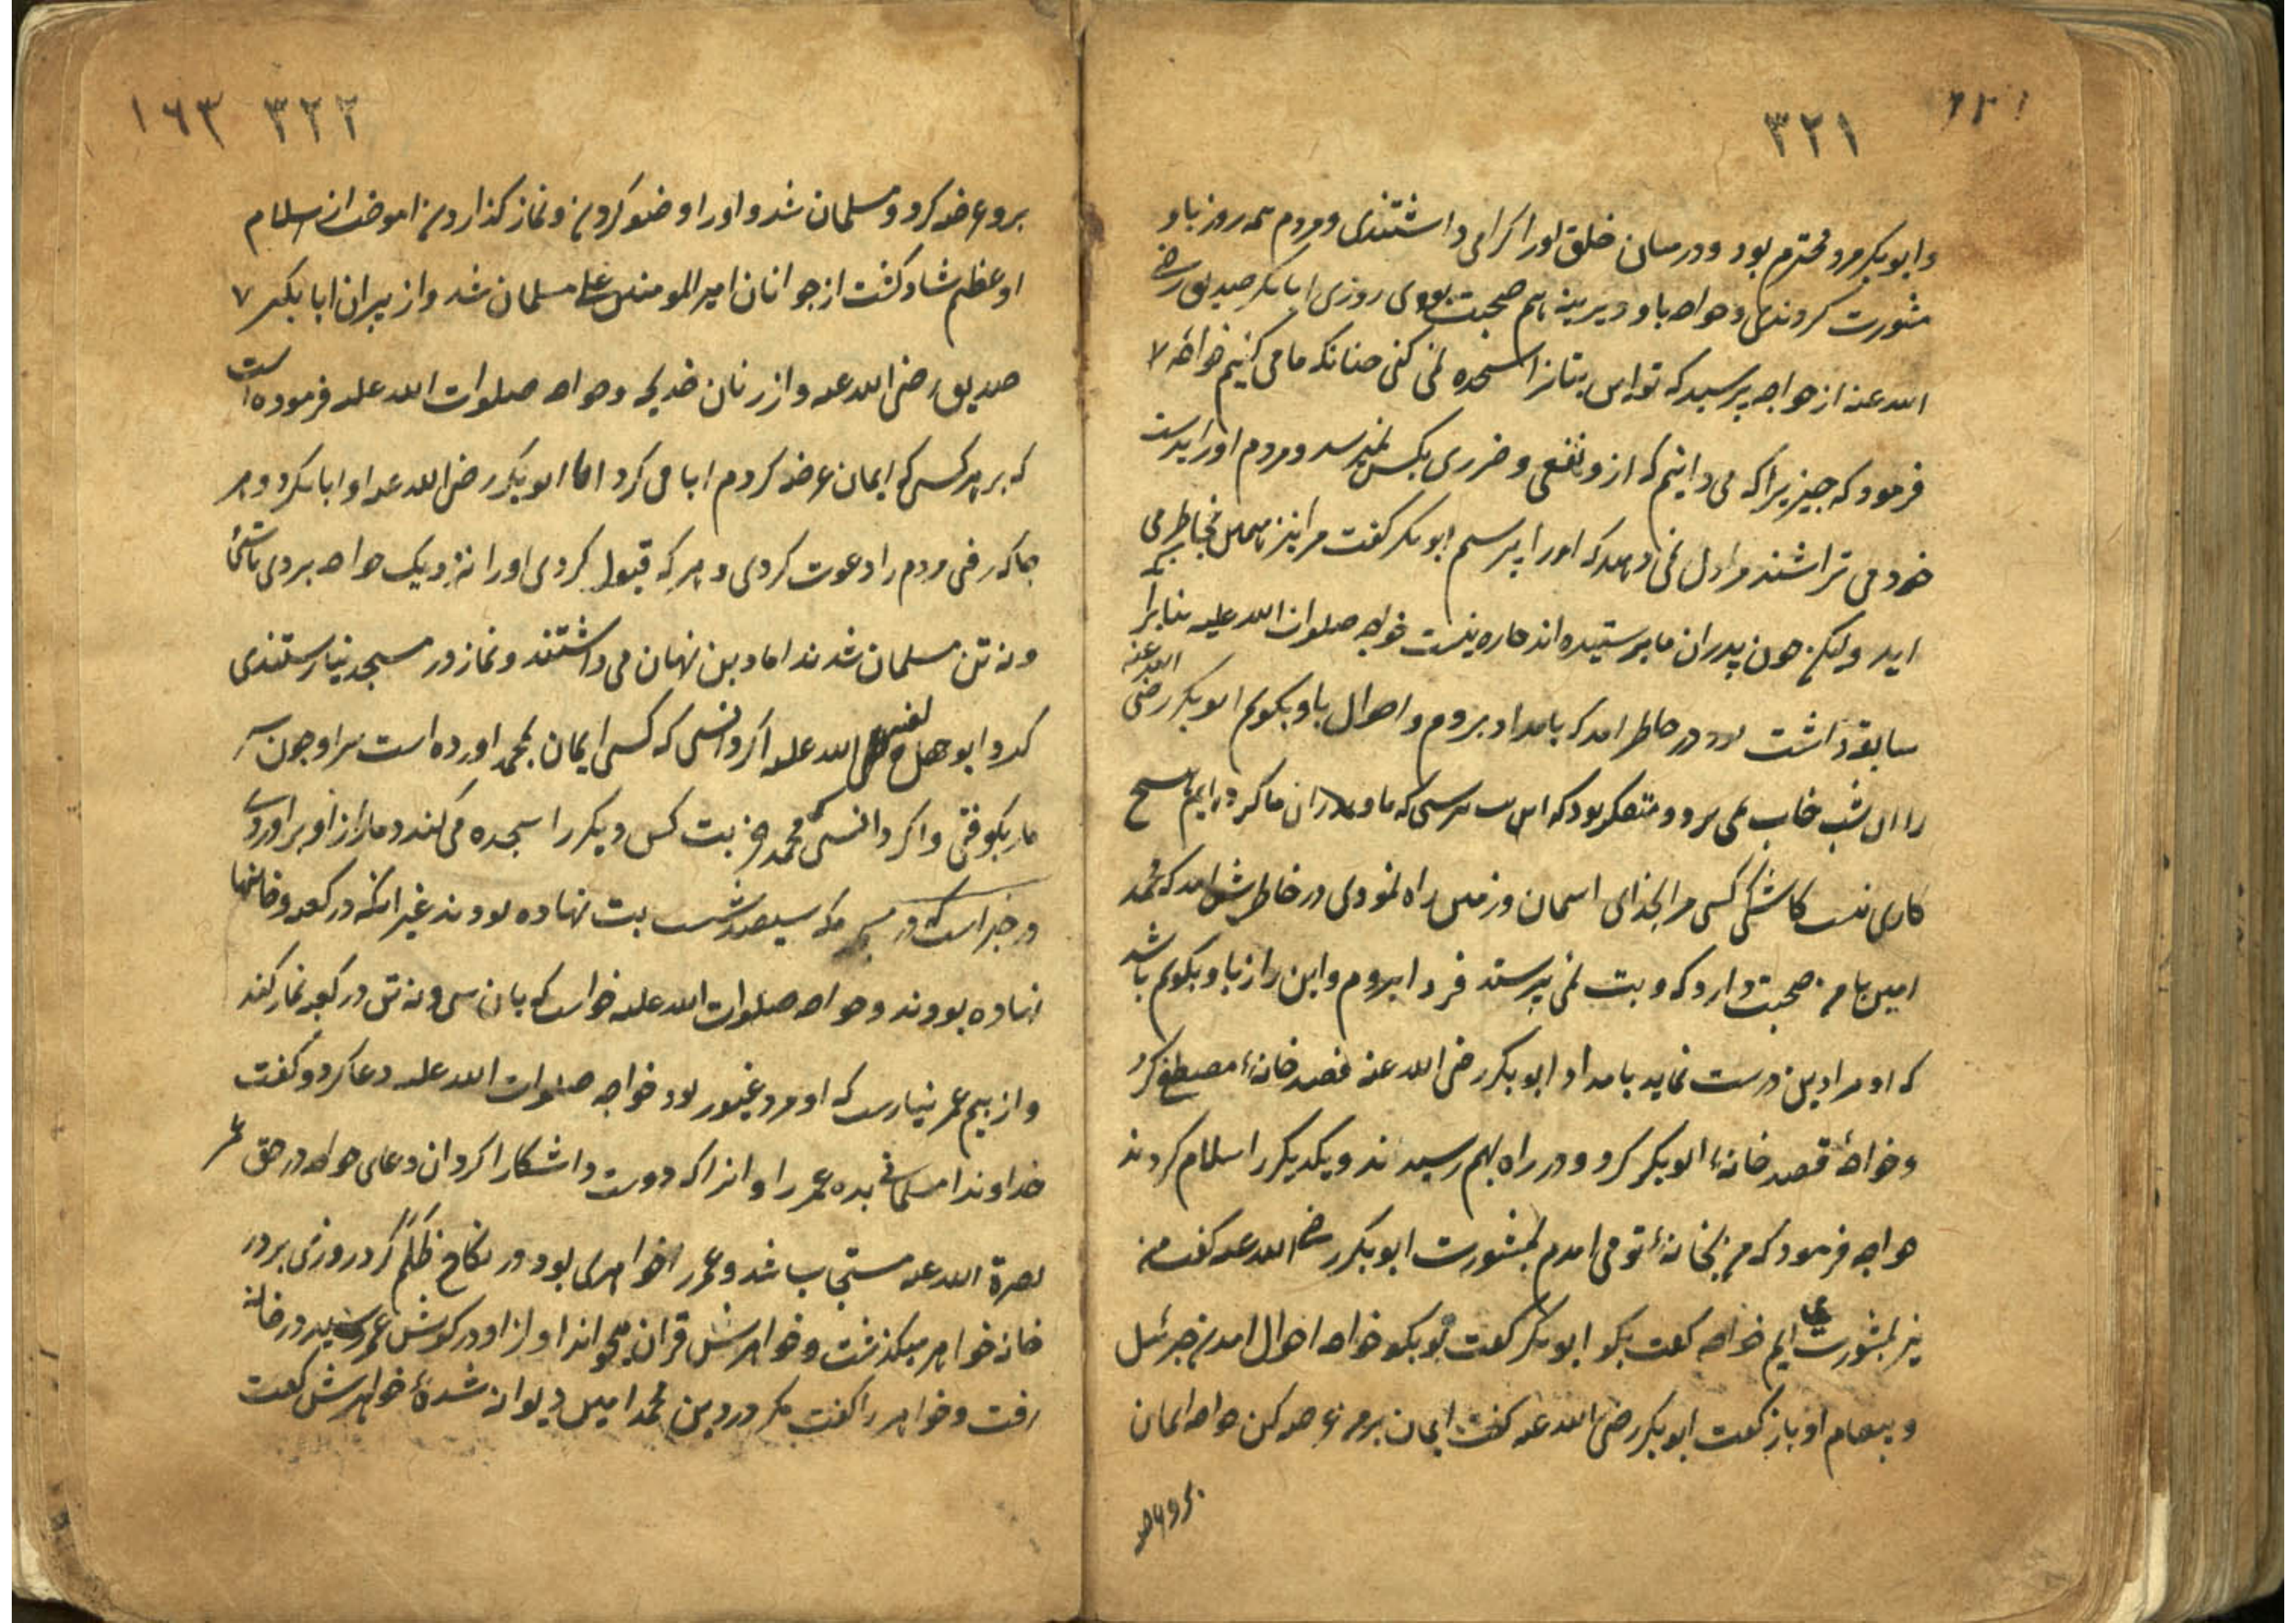 ۳۲۱
وابوبکر مرد محترم بود و در میان خلق اورا کرامی داشتندی و مردم همه روز باو
مشورت کردندی و خواجه باو دیرینه باهم صحبت بودی روزی ابابکر صدیق رضی
الله عنه از خواجه پرسید که تو این بتانرا سجده نمی کنی چنانکه ما می کنیم خواجه
فرمود که چیزیرا که می دانیم که ازو نفعی و ضرری بکس نمیرسد و مردم اورا بدست
خود می تراشند مرا دل نمی دهد که اورا پرستم ابوبکر کفت مرا نیز همین بخاطر می
اید ولیکن چون پدران ما پرستیده اند چاره نیست خواجه صلوات الله علیه بنابرانکه
سابقه داشت بود در خاطر امد که بامداد بروم و احوال باو بکویم ابوبکر رضی الله عنه
را ان شب خاب نمی برد و متفکر بود که این بت پرستی که ما و پدران ما کرده ایم هیچ
کاری نیست کاشکی کسی مرا بخدای اسمان و زمین راه نمودی در خاطرش امد که محمد
امین بامن صحبت دارد که و بت نمی پرستد فردا بروم و این راز باو بکویم باشد
که او مرا دین درست نماید بامداد ابوبکر رضی الله عنه قصد خانهٔ مصطفی کرد
و خواجه قصد خانهٔ ابوبکر کرد و در راه بهم رسیدند و یکدیکر را سلام کردند
خواجه فرمود که من بخانهٔ تو می امدم بمشورت ابوبکر رضی الله عنه کفت من
نیز بمشورت می ایم خواجه کفت بکو ابوبکر کفت تو بکو خواجه احوال امدن جبرئیل
و پیغام او باز کفت ابوبکر رضی الله عنه کفت ایمان بر من عرضه کن خواجه ایمان
بروعرضه
۳۲۲ ۱۶۳
برو عرضه کرد و مسلمان شد و اورا وضو کردن و نماز کذاردن اموخت از اسلام
او عظیم شاد کشت از جوانان امیر المومنین علی مسلمان شد و از پیران ابابکر
صدیق رضی الله عنه و از زنان خدیجه و خواجه صلوات الله علیه فرموده است
که بر هر کسی که ایمان عرضه کردم ابا می کرد اما ابوبکر رضی الله عنه او ابا نکرد و هر
جا که رفتی مردم را دعوت کردی و هر که قبول کردی اورا نزدیک خواجه بردی تا سی
و نه تن مسلمان شدند اما دین نهان می داشتند و نماز در مسجد نیارستندی
کرد و ابو جهل لعنه الله علیه اکر دانستی که کسی ایمان بمحمد اورده است سر او چون سر
مار بکوفتی و اکر دانستی که محمد جز بت کس دیکر را سجده می کند دمار از او براوردی
و در خبر است که در مکه سیصد شصت بت نهاده بودند غیر انکه در کعبه و خانها
نهاده بودند و خواجه صلوات الله علیه خواست که بان سی و نه تن در کعبه نماز کند
و از بیم عمر نیارست که او مرد غیور بود خواجه صلوات الله علیه دعا کرد و کفت
خداوندا مسلمانی بده عمر را و انرا که دوست داشکارا کردان دعای خواجه در حق عمر
نصرة الله علیه مستجاب شد و عمر را خواهری بود در نکاح روزی بر در
خانه خواهر میکذشت و خواهرش قران میخواند اواز او در کوش عمر رسید در خانه
رفت و خواهر را کفت مکر در دین محمد امین دیوانه شدهٔ خواهرش کفت